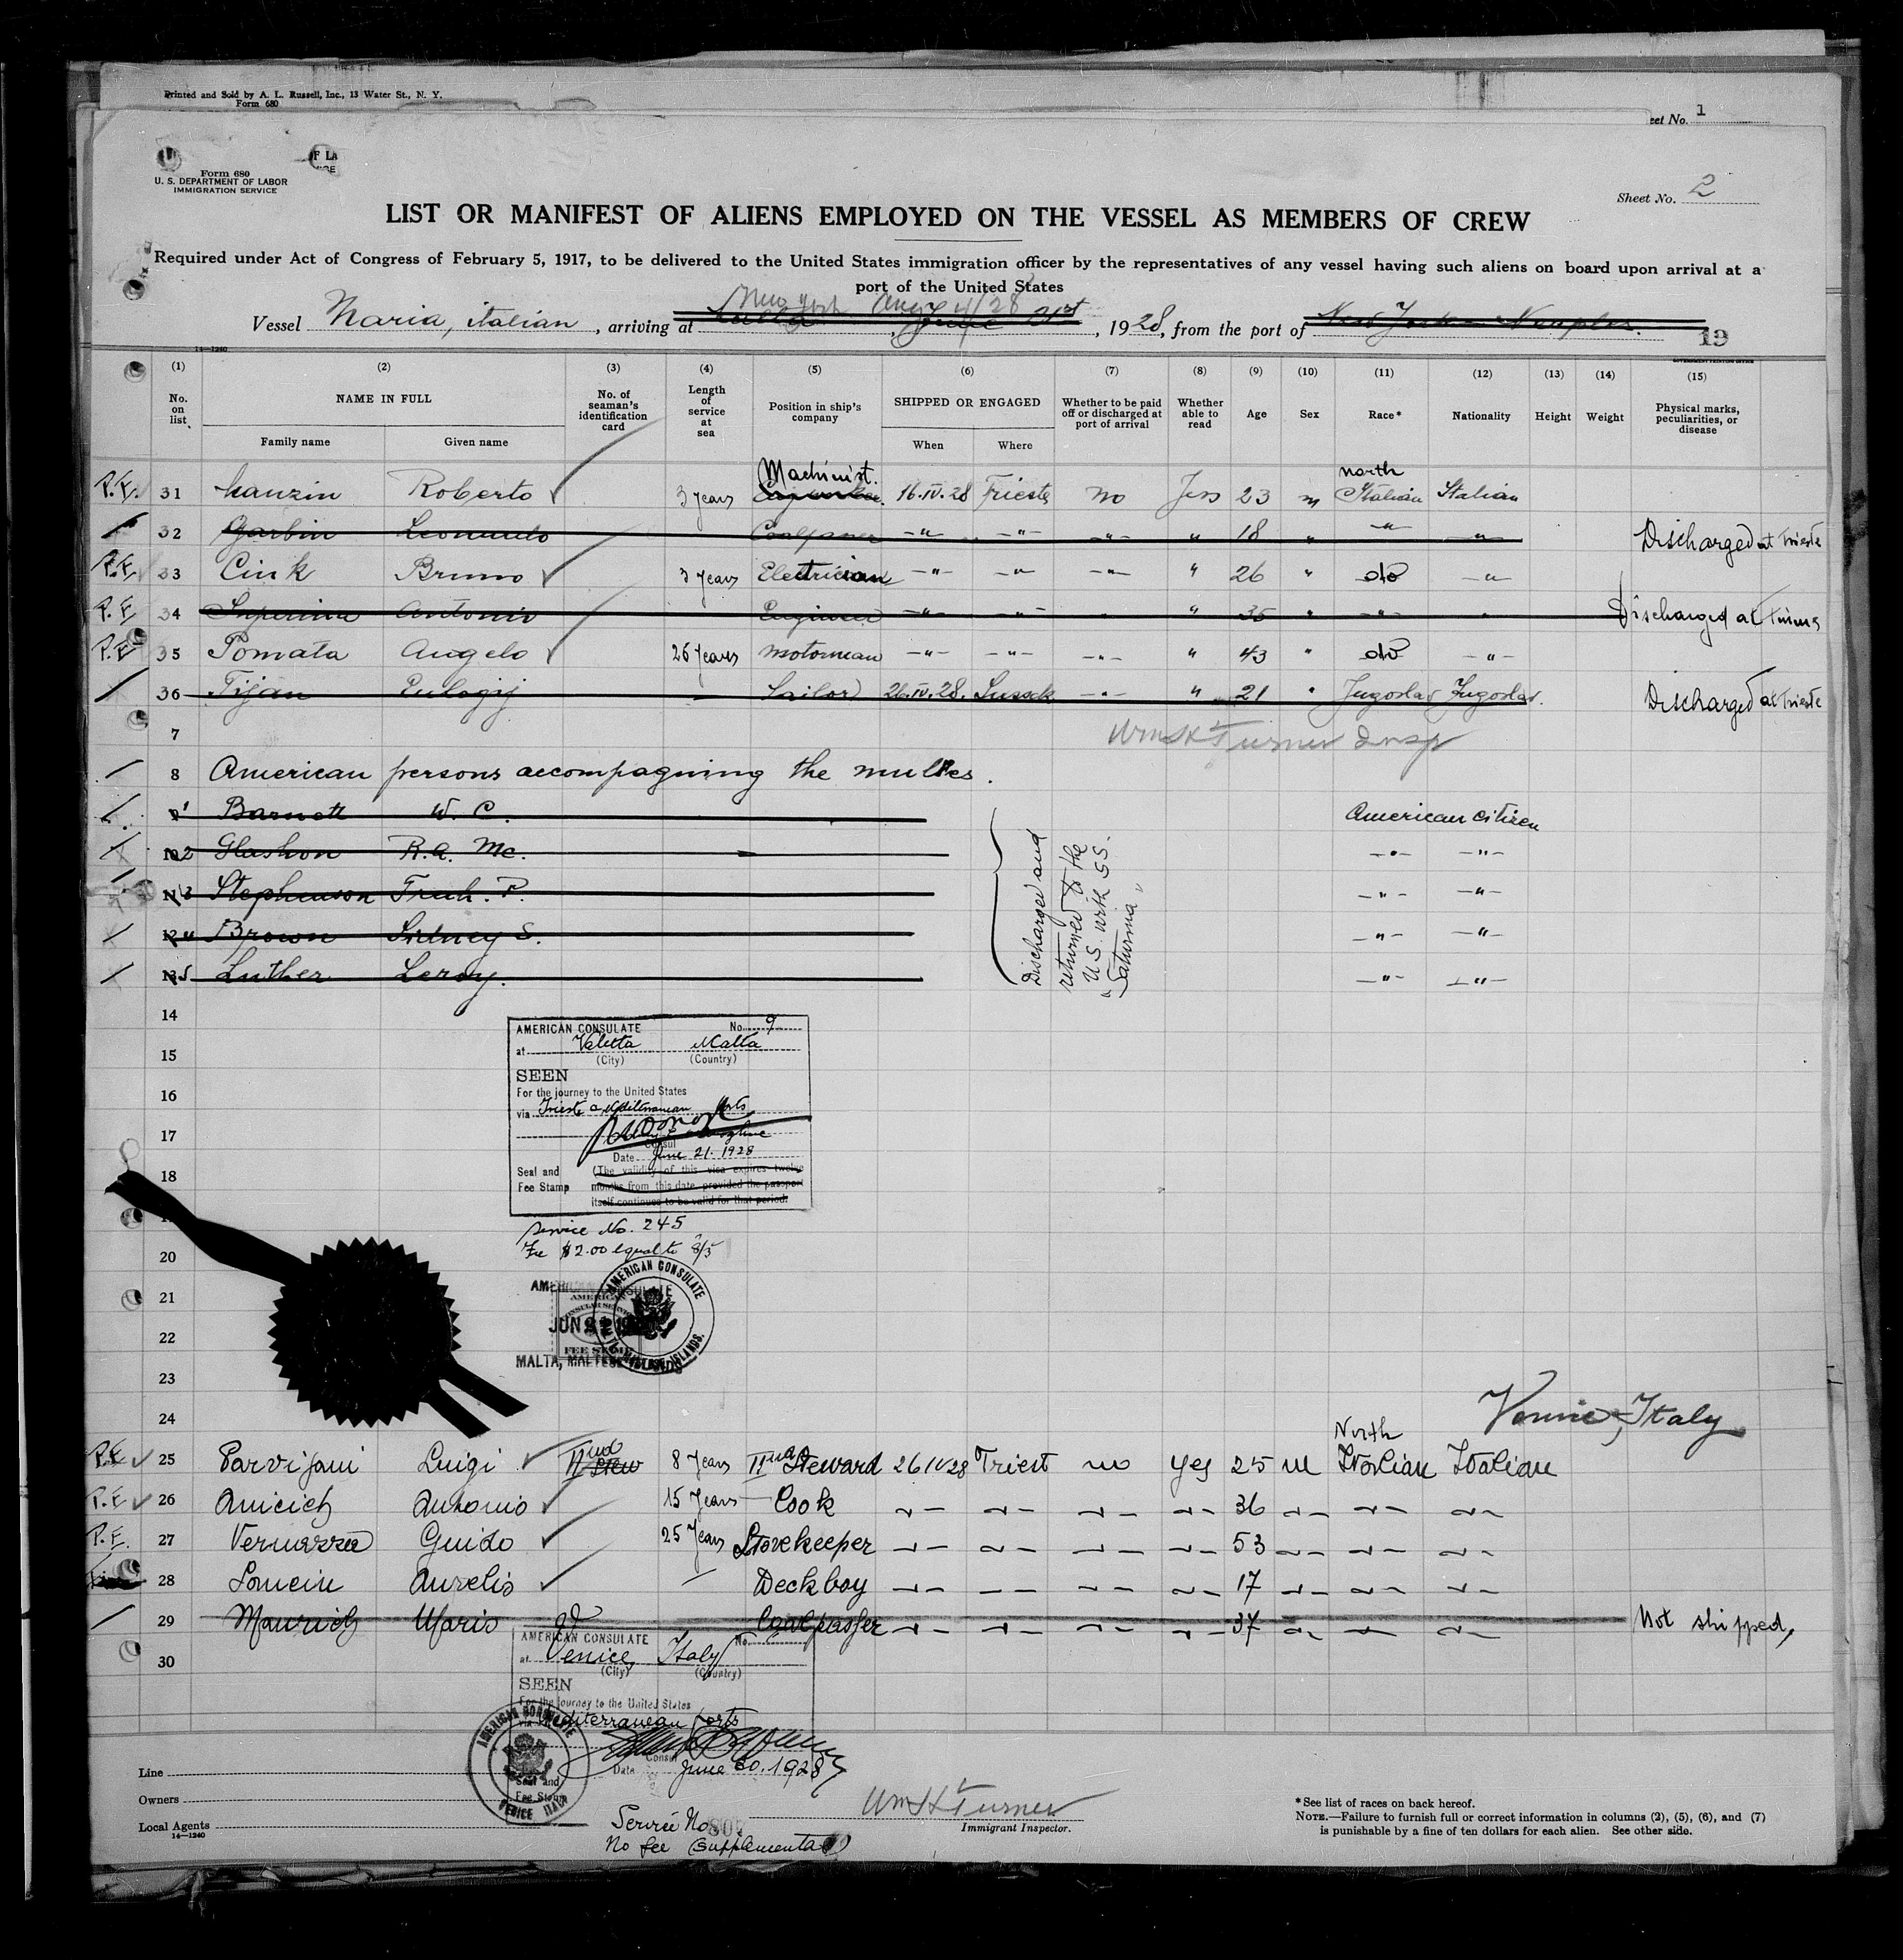 Printed and Sold by A. L. Russell, Inc., 13 Water St., N. Y.
Form 680
eet No. 1
OF LA
Form 680
U. S. DEPARTMENT OF LABOR
IMMIGRATION SERVICE
Sheet No. 2
LIST OR MANIFEST OF ALIENS EMPLOYED ON THE VESSEL AS MEMBERS OF CREW
Required under Act of Congress of February 5, 1917, to be delivered to the United States immigration officer by the representatives of any vessel having such aliens on board upon arrival at a
port of the United States
New York Aug 4/28
Vessel Maria, italian, arriving at June 21st, 1928, from the port of New York - Neaples.
19
14—1240
GOVERNMENT PRINTING OFFICE
(1) (2) (3) (4) (5) (6) (7) (8) (9) (10) (11) (12) (13) (14) (15)
No. on list NAME IN FULL No. of seaman's identification card Length of service at sea Position in ship's company SHIPPED OR ENGAGED Whether to be paid off or discharged at port of arrival Whether able to read Age Sex Race* Nationality Height Weight Physical marks, peculiarities, or disease
Family name Given name When Where
Machinist. north
P.F. 31 Roberto 3 years 16.IV.28 Trieste no Jes 23 m Italian Italian
32 Garbin Leonardo Coalpasser —"— —"— —"— " 18 " —"— —"— Discharged at Trieste
P.F. 33 Cink Bruno 3 years Electrician —"— —"— —"— " 26 " do —"—
P.F. 34 Superina Antonio Engineer —"— —"— " " 35 " —"— " Discharged at
P.F. 35 Tomata Angelo 26 years motorman —"— —"— —"— " 43 " do —"—
36 Tijan Eulogij Sailor 26.IV.28. Sussak —"— " 21 " Jugoslav Jugoslav. Discharged at Trieste
7
Wm H Turner Insp
8 American persons accompagning the mulles.
1 Barnett W. C. American citizen
10 2 Glashon R.A. Mc. —"— —"—
11 3 Stephenson Frank. P. —"— —"—
12 4 Brown Sidney S. —"— —"—
13 5 Luther Leroy. —"— —"—
Discharged and
returned to the
U.S. with SS.
"Saturnia"
14
AMERICAN CONSULATE No. 9
at Valetta Malta
15
(City) (Country)
SEEN
16
For the journey to the United States
via Trieste a Mediterranean Ports
17
Consul
Date June 21. 1928
Seal and (The validity of this visa expires twelve
18
Fee Stamp months from this date, provided the passport
itself continues to be valid for that period.
Service No. 245
Fee $2.00 equal to 8/5
20
AMERICAN CONSULATE
AMERICAN CONSULATE
21
AMERICAN
CONSULAR SERVICE
JUN 21 1928
22
FEE STAMP
MALTA, MALTESE ISLANDS
23
24
Venice, Italy
IInd North
P.F. 25 Luigi Stew 8 Years IInd Steward 26 IV 28 Triest no yes 25 m Italian Italian
P.F. 26 Amicich Antonio 15 Years Cook 36
P.F. 27 Vernazza Guido 25 Years Storekeeper 53
28 Aurelio Deckboy 17
29 Maurich Mario Coalpasser 37 Not shipped,
AMERICAN CONSULATE No.
at Venice, Italy
30
(City) (Country)
SEEN
For the journey to the United States
via Mediterranean ports
AMERICAN CONSULATE
VENICE ITALY
Consul
Line
Date June 30. 1928
Seal and
Fee Stamp
Owners
Local Agents
14—1240
Service No. 807
No fee (Supplemental)
Wm H Turner
Immigrant Inspector.
*See list of races on back hereof.
NOTE.—Failure to furnish full or correct information in columns (2), (5), (6), and (7)
is punishable by a fine of ten dollars for each alien. See other side.